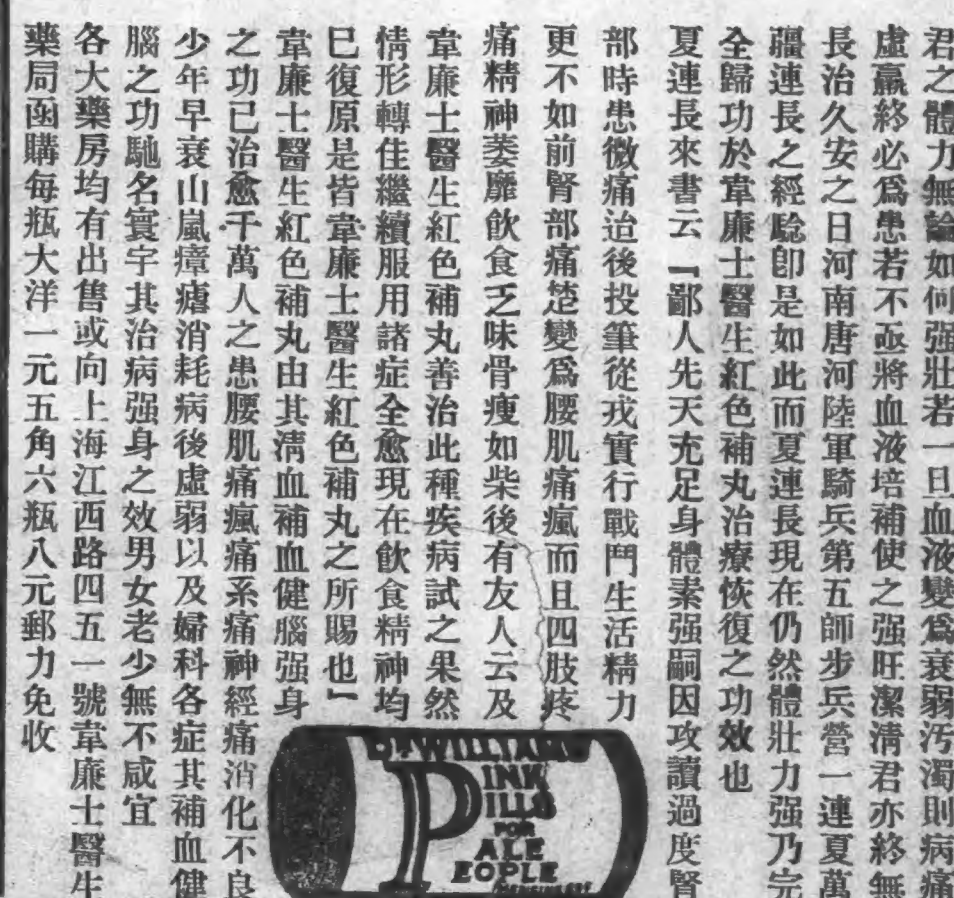 君之體力無論如何强壯若一旦血液變爲衰弱污濁則病痛
虛羸終必爲患若不亟將血液培補使之强旺潔清君亦終無
長治久安之日河南唐河陸軍騎兵第五師步兵營一連夏萬
疆連長之經騐卽是如此而夏連長現在仍然體壯力强乃完
全歸功於韋廉士醫生紅色補丸治療恢復之功效也
夏連長來書云『鄙人先天充足身體素强嗣因攻讀過度腎
部時患微痛迨後投筆從戎實行戰鬥生活精力
更不如前腎部痛楚變爲腰肌痛瘋而且四肢疼
痛精神萎靡飲食乏味骨瘦如柴後有友人云及
韋廉士醫生紅色補丸善治此種疾病試之果然
情形轉佳繼續服用諸症全愈現在飲食精神均
已復原是皆韋廉士醫生紅色補丸之所賜也』
韋廉士醫生紅色補丸由其淸血補血健腦强身
之功已治愈千萬人之患腰肌痛瘋痛系痛神經痛消化不良
少年早衰山嵐瘴瘧消耗病後虛弱以及婦科各症其補血健
腦之功馳名寰宇其治病强身之效男女老少無不咸宜
各大藥房均有出售或向上海江西路四五一號韋廉士醫生
藥局函購每瓶大洋一元五角六瓶八元郵力免收
DR.WILLIAMS
PINK
PILLS
FOR
PALE
PEOPLE